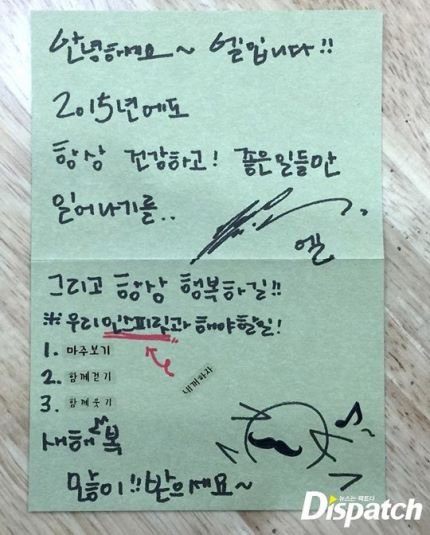 안녕하세요~ 엘입니다!!
2015년에도
항상 건강하고! 좋은일들만
일어나기를..
엘
그리고 항상 행복하길!!
※우리 인스피릿과 해야할일!
1. 마주보기
2. 함께걷기
3. 함께웃기
내꺼하자
새해 복
많이!!받으세요~
뉴스는 팩트다
Dispatch